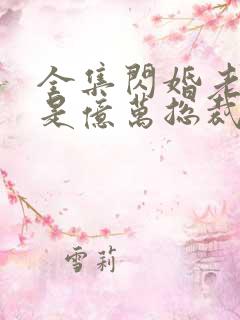 全集閃婚老
是億萬總裁
雪莉